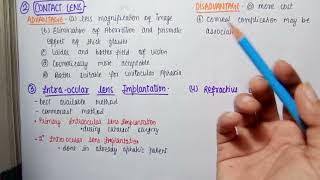 ② CONTACT LENS
ADVANTAGE - ⓐ less magnification of image
ⓑ Elimination of Aberration and prismatic
effect of thick glasses
ⓒ Wider and better field of vision
ⓓ Cosmetically more acceptable
ⓔ Better suitable for uniocular aphakia
DISADVANTAGE - ⓐ more cost
ⓑ corneal complication may be
associa
③ Intra-ocular lens Implantation.
- best available method
- commonest method
• Primary Intraocular lens Implantation
- during cataract surgery
• 2° Intraocular lens Implantation
- done in already aphakic patient
④ Refractive